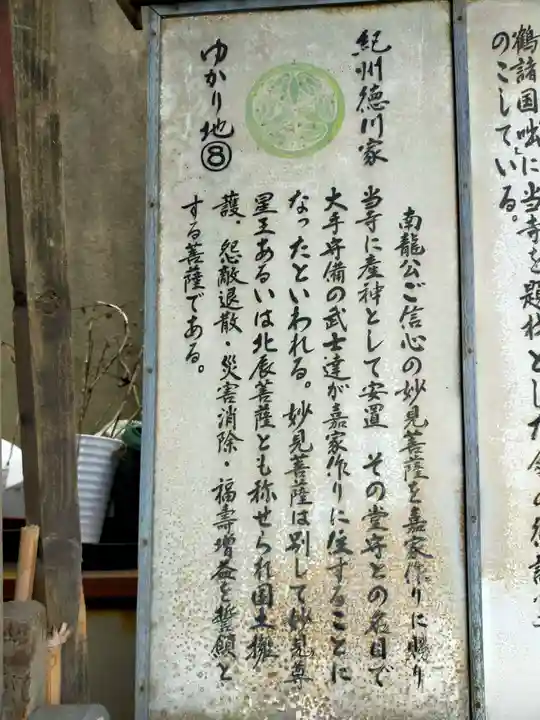 鶴諸国咄」に当寺を題材とした
のこしている。
紀州徳川家
ゆかり地⑧
南龍公ご信心の妙見菩薩を嘉家作りに賜り
当寺に産神として安置 その堂守との名目で
大手守備の武士達が嘉家作りに住することに
なったといわれる。妙見菩薩は別して妙見尊
星王あるいは北辰菩薩とも称せられ国土擁
護、怨敵退散・災害消除・福壽増益を誓願と
する菩薩である。